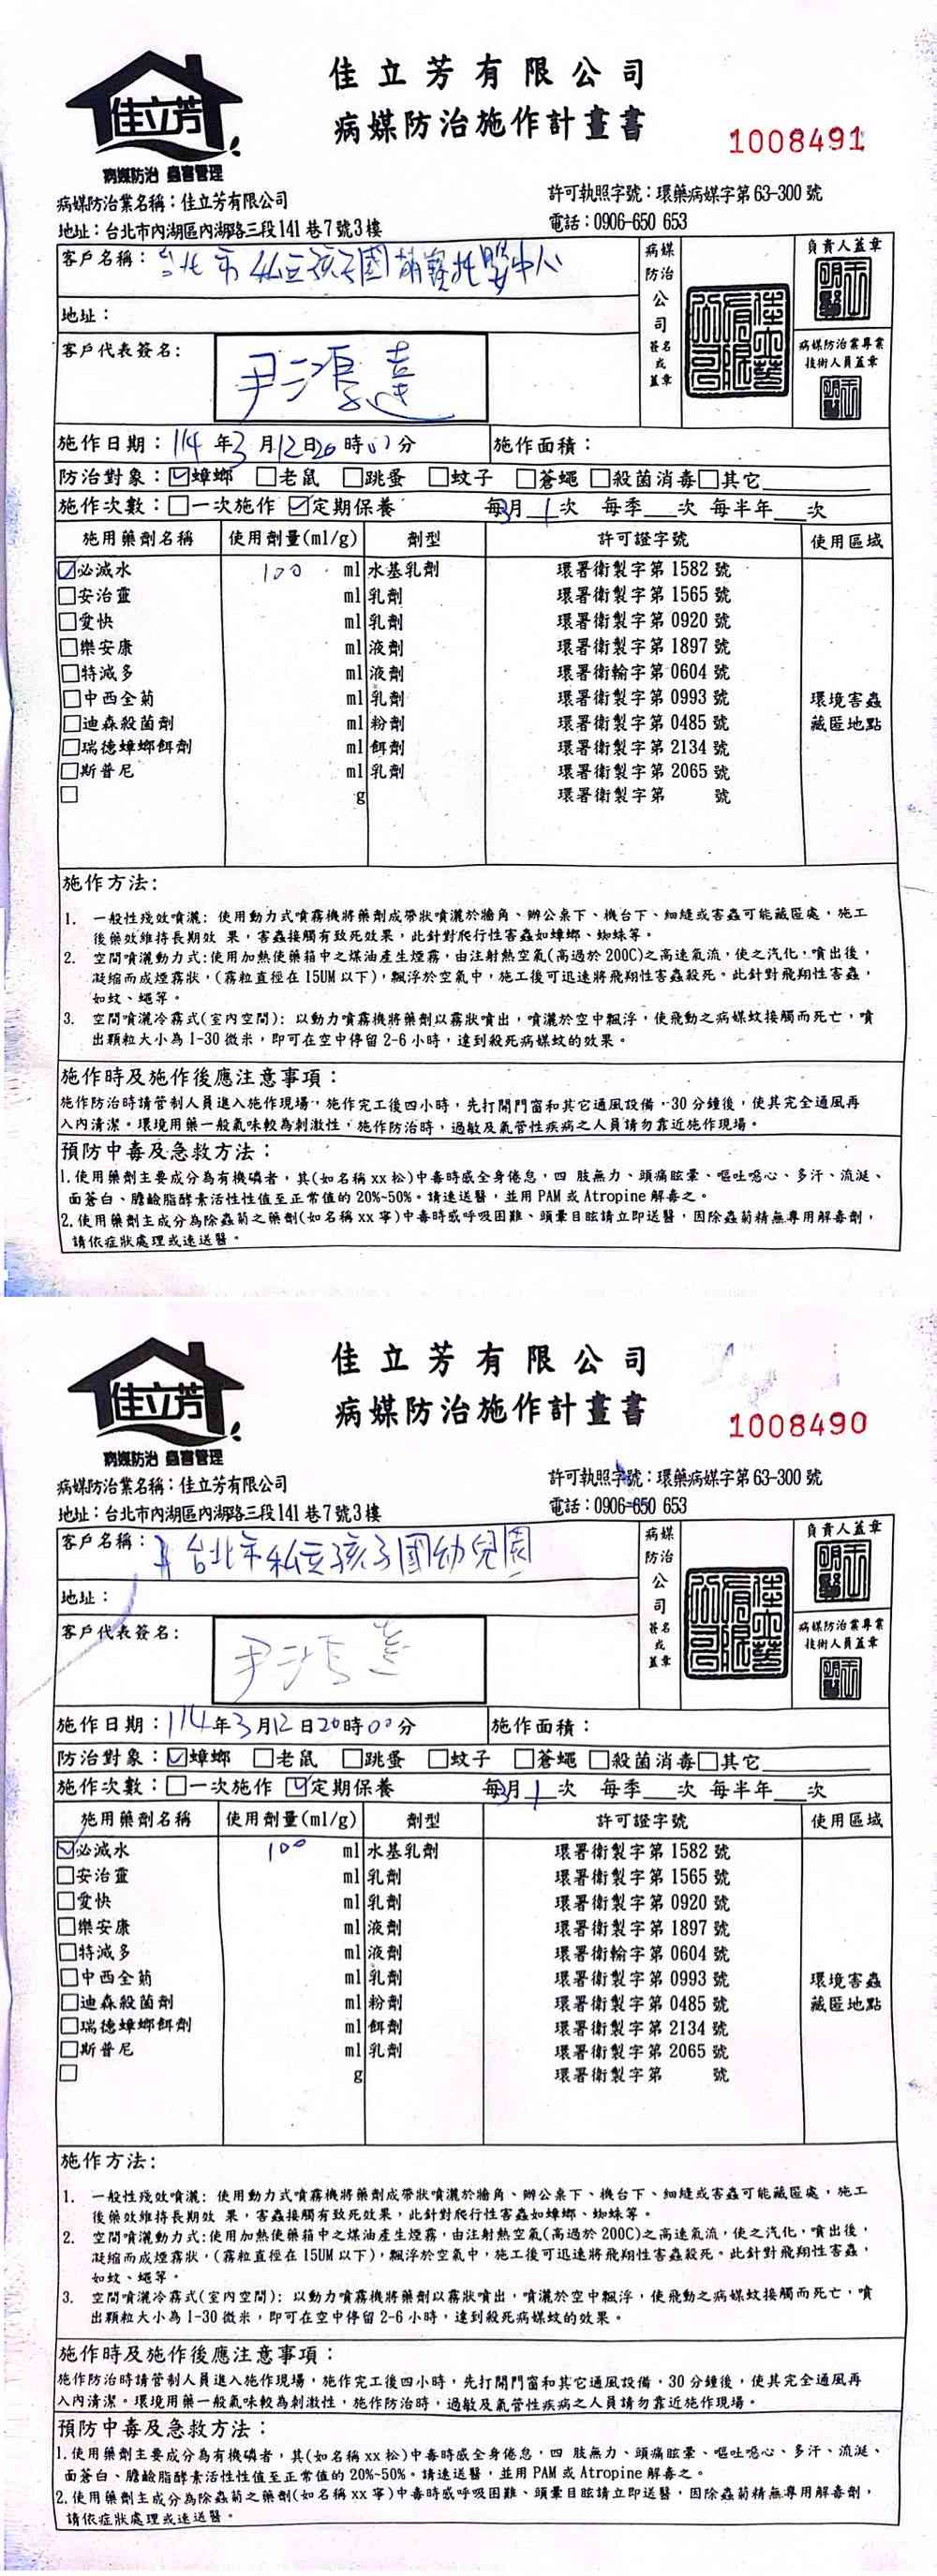 佳立芳
病媒防治 蟲害管理
佳立芳有限公司
病媒防治施作計畫書
1008491
病媒防治業名稱：佳立芳有限公司
許可執照字號：環藥病媒字第63-300號
地址：台北市內湖區內湖路三段141巷7號3樓
電話：0906-650 653
客戶名稱：台北市私立孩子國萌寶托嬰中心
病媒防治公司簽名或蓋章
負責人蓋章
地址：
客戶代表簽名：
病媒防治業專業技術人員蓋章
施作日期：114年3月12日20時00分 施作面積：
防治對象：☑蟑螂 □老鼠 □跳蚤 □蚊子 □蒼蠅 □殺菌消毒□其它
施作次數：□一次施作 ☑定期保養 每3月1次 每季__次 每半年__次
施用藥劑名稱 使用劑量(ml/g) 劑型 許可證字號 使用區域
☑必滅水 100 ml 水基乳劑 環署衛製字第 1582 號
□安治靈 ml 乳劑 環署衛製字第 1565 號
□愛快 ml 乳劑 環署衛製字第 0920 號
□樂安康 ml 液劑 環署衛製字第 1897 號
□特滅多 ml 液劑 環署衛輸字第 0604 號
□中西全菊 ml 乳劑 環署衛製字第 0993 號 環境害蟲
□迪森殺菌劑 ml 粉劑 環署衛製字第 0485 號 藏匿地點
□瑞德蟑螂餌劑 ml 餌劑 環署衛製字第 2134 號
□斯普尼 ml 乳劑 環署衛製字第 2065 號
□ g 環署衛製字第 號
施作方法：
1. 一般性殘效噴灑：使用動力式噴霧機將藥劑成帶狀噴灑於牆角、辦公桌下、機台下、細縫或害蟲可能藏匿處，施工
後藥效維持長期效 果，害蟲接觸有致死效果，此針對爬行性害蟲如蟑螂、蜘蛛等。
2. 空間噴灑動力式：使用加熱使藥箱中之煤油產生煙霧，由注射熱空氣(高過於 200C)之高速氣流，使之汽化，噴出後，
凝縮而成煙霧狀，(霧粒直徑在 15UM 以下)，飄浮於空氣中，施工後可迅速將飛翔性害蟲殺死。此針對飛翔性害蟲，
如蚊、蠅等。
3. 空間噴灑冷霧式(室內空間)：以動力噴霧機將藥劑以霧狀噴出，噴灑於空中飄浮，使飛動之病媒蚊接觸而死亡，噴
出顆粒大小為 1-30 微米，即可在空中停留 2-6 小時，達到殺死病媒蚊的效果。
施作時及施作後應注意事項：
施作防治時請管制人員進入施作現場，施作完工後四小時，先打開門窗和其它通風設備，30 分鐘後，使其完全通風再
入內清潔。環境用藥一般氣味較為刺激性，施作防治時，過敏及氣管性疾病之人員請勿靠近施作現場。
預防中毒及急救方法：
1.使用藥劑主要成分為有機磷者，其(如名稱 xx 松)中毒時感全身倦怠，四 肢無力、頭痛眩暈、嘔吐噁心、多汗、流涎、
面蒼白、膽鹼脂酵素活性性值至正常值的 20%~50%。請速送醫，並用 PAM 或 Atropine 解毒之。
2.使用藥劑主成分為除蟲菊之藥劑(如名稱 xx 寧)中毒時感呼吸困難、頭暈目眩請立即送醫，因除蟲菊精無專用解毒劑，
請依症狀處理或速送醫。
佳立芳
病媒防治 蟲害管理
佳立芳有限公司
病媒防治施作計畫書
1008490
病媒防治業名稱：佳立芳有限公司
許可執照字號：環藥病媒字第63-300號
地址：台北市內湖區內湖路三段141巷7號3樓
電話：0906-650 653
客戶名稱：台北市私立孩子國幼兒園
病媒防治公司簽名或蓋章
負責人蓋章
地址：
客戶代表簽名：
病媒防治業專業技術人員蓋章
施作日期：114年3月12日20時00分 施作面積：
防治對象：☑蟑螂 □老鼠 □跳蚤 □蚊子 □蒼蠅 □殺菌消毒□其它
施作次數：□一次施作 ☑定期保養 每3月1次 每季__次 每半年__次
施用藥劑名稱 使用劑量(ml/g) 劑型 許可證字號 使用區域
☑必滅水 100 ml 水基乳劑 環署衛製字第 1582 號
□安治靈 ml 乳劑 環署衛製字第 1565 號
□愛快 ml 乳劑 環署衛製字第 0920 號
□樂安康 ml 液劑 環署衛製字第 1897 號
□特滅多 ml 液劑 環署衛輸字第 0604 號
□中西全菊 ml 乳劑 環署衛製字第 0993 號 環境害蟲
□迪森殺菌劑 ml 粉劑 環署衛製字第 0485 號 藏匿地點
□瑞德蟑螂餌劑 ml 餌劑 環署衛製字第 2134 號
□斯普尼 ml 乳劑 環署衛製字第 2065 號
□ g 環署衛製字第 號
施作方法：
1. 一般性殘效噴灑：使用動力式噴霧機將藥劑成帶狀噴灑於牆角、辦公桌下、機台下、細縫或害蟲可能藏匿處，施工
後藥效維持長期效 果，害蟲接觸有致死效果，此針對爬行性害蟲如蟑螂、蜘蛛等。
2. 空間噴灑動力式：使用加熱使藥箱中之煤油產生煙霧，由注射熱空氣(高過於 200C)之高速氣流，使之汽化，噴出後，
凝縮而成煙霧狀，(霧粒直徑在 15UM 以下)，飄浮於空氣中，施工後可迅速將飛翔性害蟲殺死。此針對飛翔性害蟲，
如蚊、蠅等。
3. 空間噴灑冷霧式(室內空間)：以動力噴霧機將藥劑以霧狀噴出，噴灑於空中飄浮，使飛動之病媒蚊接觸而死亡，噴
出顆粒大小為 1-30 微米，即可在空中停留 2-6 小時，達到殺死病媒蚊的效果。
施作時及施作後應注意事項：
施作防治時請管制人員進入施作現場，施作完工後四小時，先打開門窗和其它通風設備，30 分鐘後，使其完全通風再
入內清潔。環境用藥一般氣味較為刺激性，施作防治時，過敏及氣管性疾病之人員請勿靠近施作現場。
預防中毒及急救方法：
1.使用藥劑主要成分為有機磷者，其(如名稱 xx 松)中毒時感全身倦怠，四 肢無力、頭痛眩暈、嘔吐噁心、多汗、流涎、
面蒼白、膽鹼脂酵素活性性值至正常值的 20%~50%。請速送醫，並用 PAM 或 Atropine 解毒之。
2.使用藥劑主成分為除蟲菊之藥劑(如名稱 xx 寧)中毒時感呼吸困難、頭暈目眩請立即送醫，因除蟲菊精無專用解毒劑，
請依症狀處理或速送醫。